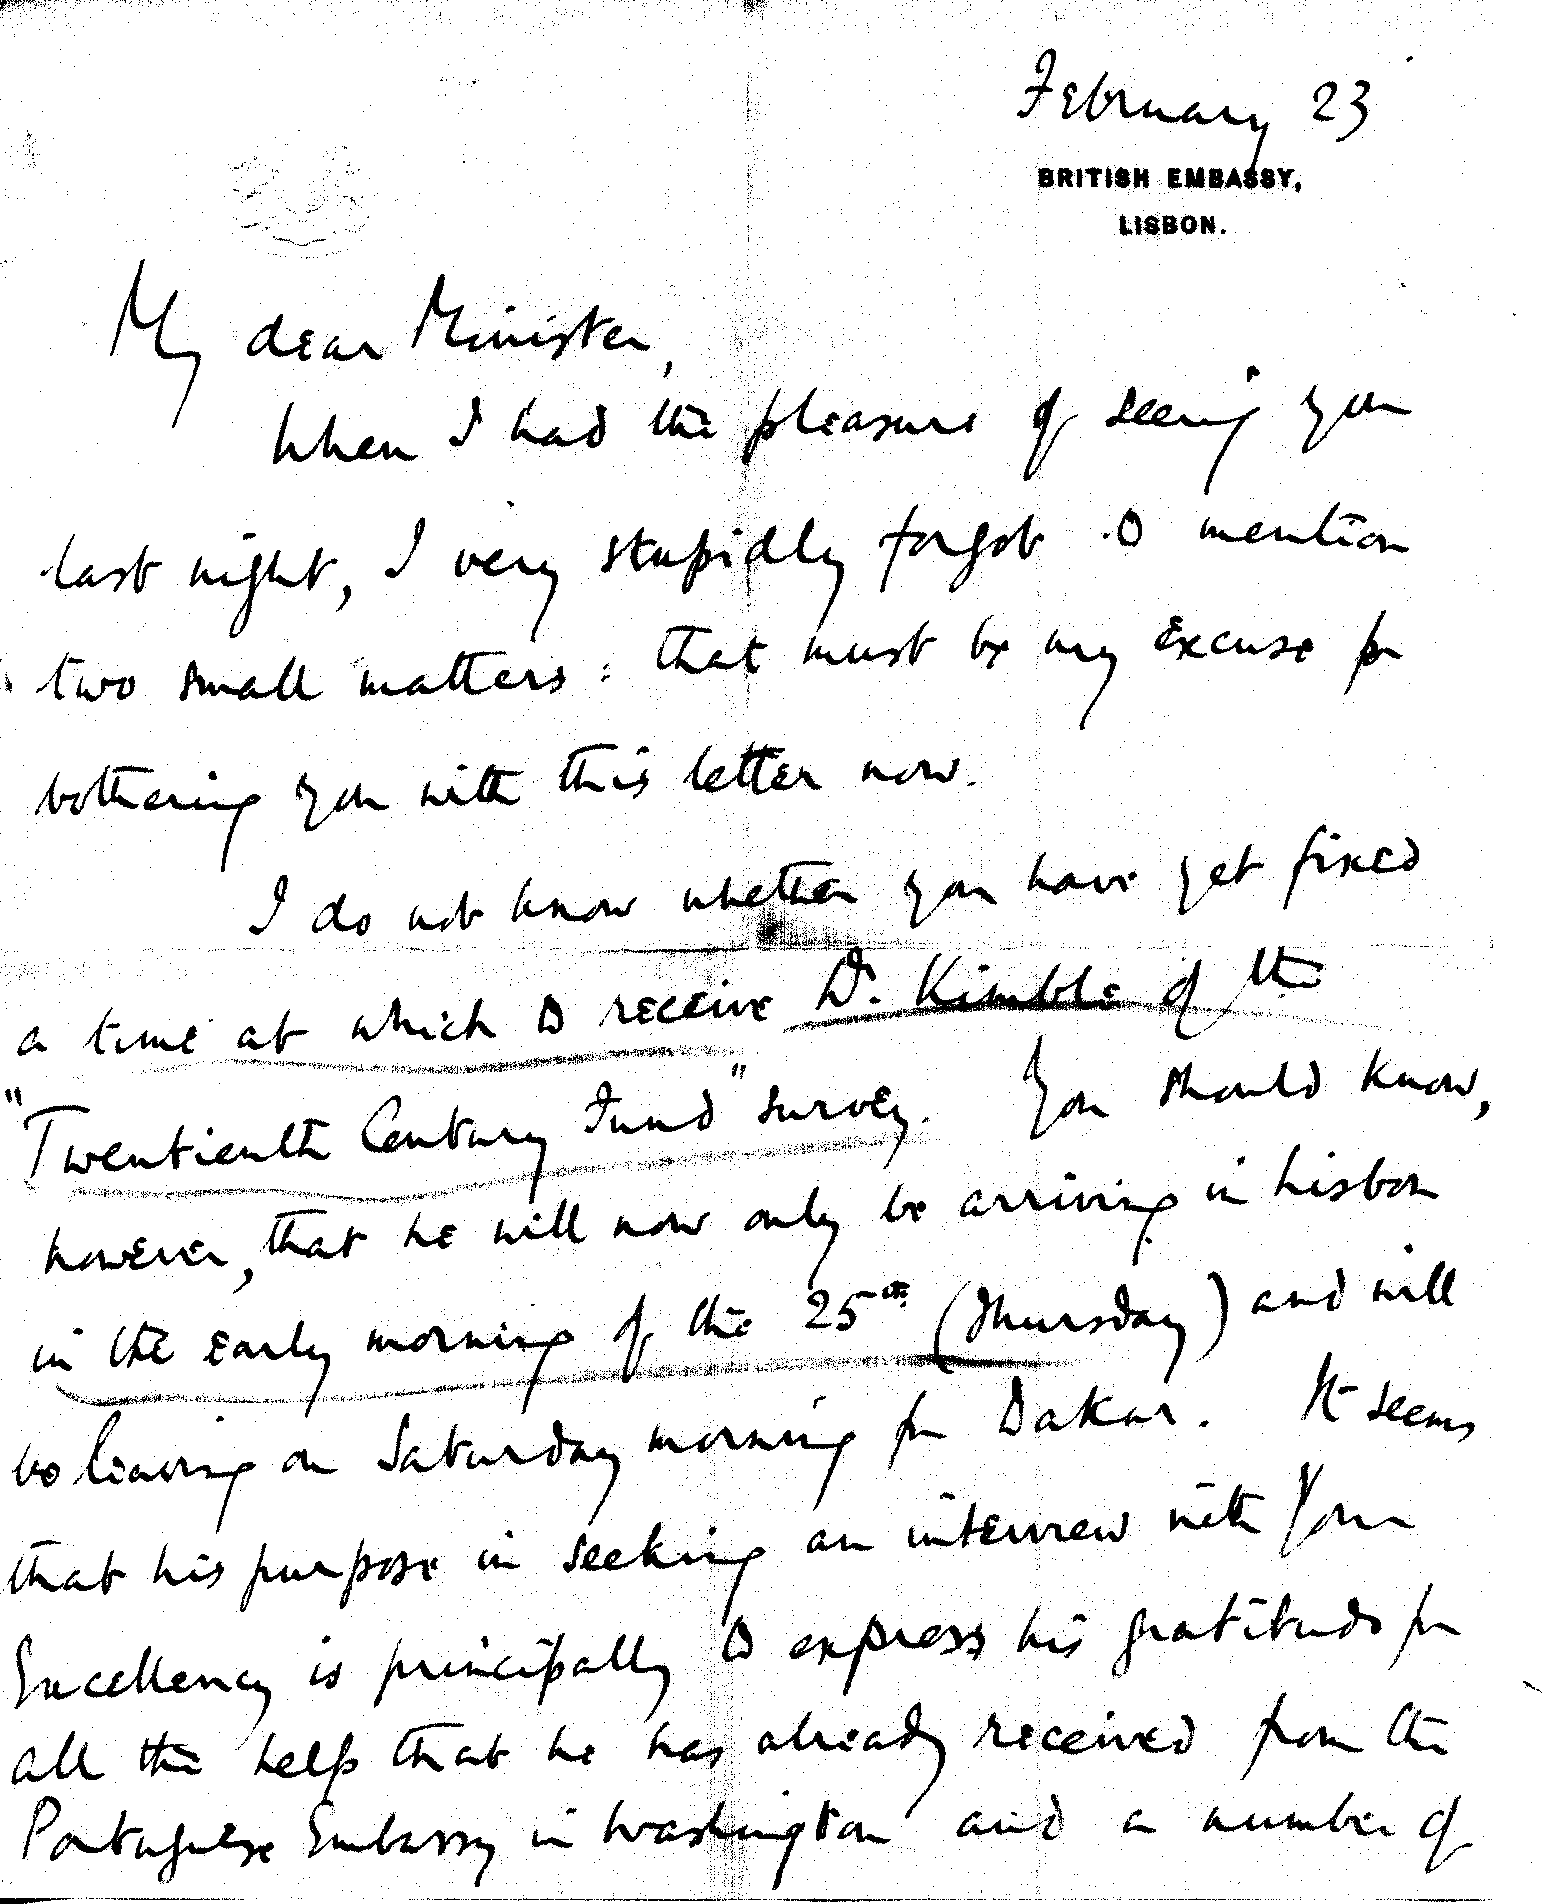 February 23
BRITISH EMBASSY,
LISBON.
My dear Minister,
When I had the pleasure of seeing you
last night, I very stupidly forgot to mention
two small matters : that must be my excuse for
bothering you with this letter now.
I do not know whether you have yet fixed
a time at which to receive Dr. Kimble of the
"Twentienth Century Fund" survey. You should know,
however, that he will now only be arriving in Lisbon
in the early morning of the 25th (Thursday) and will
be leaving on Saturday morning for Dakar. It seems
that his purpose in seeking an interview with Your
Excellency is principally to express his gratitude for
all the help that he has already received from the
Portuguese Embassy in Washington and a number of